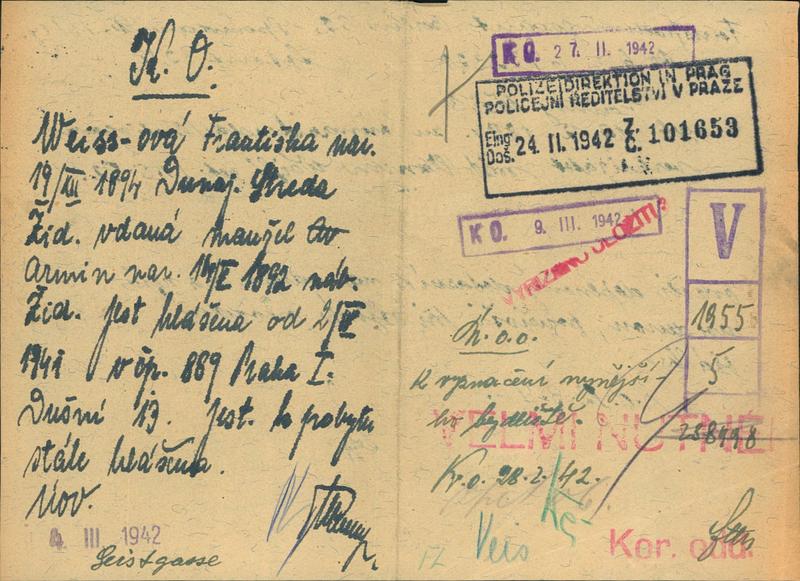 K. O.
Weiss-ová Františka nar.
19/XII 1894 Dunaj. Streda
Žid. vdaná manžel
Armin nar. 1892 náb.
Žid. jest hlášena od 2/IV
1941 v čp. 889 Praha I.
Dušní 13. jest. k pobytu
stále hlášena.
Nov.
4 III 1942
Geistgasse
K O. 27. II. 1942
POLIZEIDIREKTION IN PRAG
POLICEJNÍ ŘEDITELSTVÍ V PRAZE
Eing.
Doš. 24. II. 1942 Z. Č. 101653
K O. 9. III. 1942
VYŘIZENO ULOŽITI
V
1955
5
K.o.o.
k vyznačení nynější-
ho bydliště.
VELMI NUTNÉ
258498
K.o. 28.2./42.
Veis
Kor. odd.